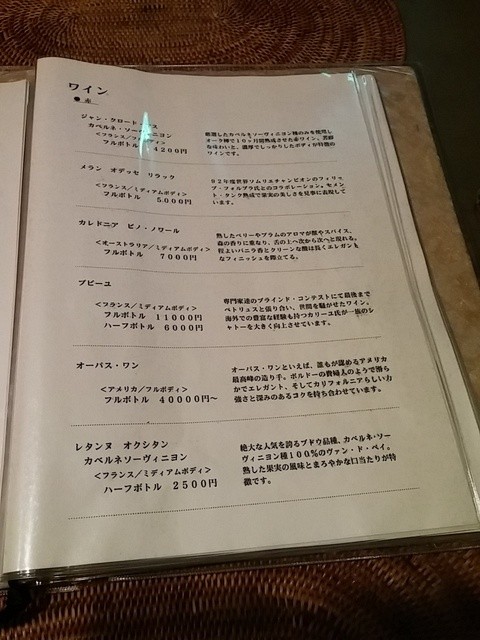 ワイン
● 赤
ジャン・クロード
カベルネ・ソーヴィニヨン
＜フランス/フルボディ＞
フルボトル 4200円
厳選したカベルネソーヴィニヨン種のみを使用し
オーク樽で16ヶ月間熟成させた赤ワイン、芳醇
な味わいと、濃厚でしっかりしたボディが特徴の
ワインです。
メラン オデッセ リラック
＜フランス/ミディアムボディ＞
フルボトル 5.000円
92年度世界ソムリエチャンピオンのフィリッ
プ・フォルブラ氏とのコラボレーション。セメン
ト・タンク熟成で果実の美しさを見事に表現して
います。
カレドニア ピノ・ノワール
＜オーストラリア/ミディアムボディ＞
フルボトル 7000円
熟したベリーやプラムのアロマが酸やスパイス、
森の香りに重なり、舌の上へ次から次へと現れる。
程よいバニラ香とクリーンな酸は長くエレガント
なフィニッシュを際立てる。
プピーユ
＜フランス/ミディアムボディ＞
フルボトル 11000円
ハーフボトル 6000円
専門家達のブラインド・コンテストにて最後まで
ペトリュスと張り合い、世間を騒がせたワイン。
海外での豊富な経験も持つカリーユ氏が一族のシ
ャトーを大きく向上させています。
オーパス・ワン
＜アメリカ/フルボディ＞
フルボトル 40000円～
オーパス・ワンといえば、誰もが認めるアメリカ
最高峰の造り手。ボルドーの貴婦人のようで滑ら
かでエレガント、そしてカリフォルニアらしい力
強さと深みのあるコクを持ち合わせています。
レタンヌ オクシタン
カベルネソーヴィニヨン
＜フランス/ミディアムボディ＞
ハーフボトル 2500円
絶大な人気を誇るブドウ品種、カベルネ・ソー
ヴィニヨン種100％のヴァン・ド・ペイ。
熟した果実の風味とまろやかな口当たりが特
徴です。